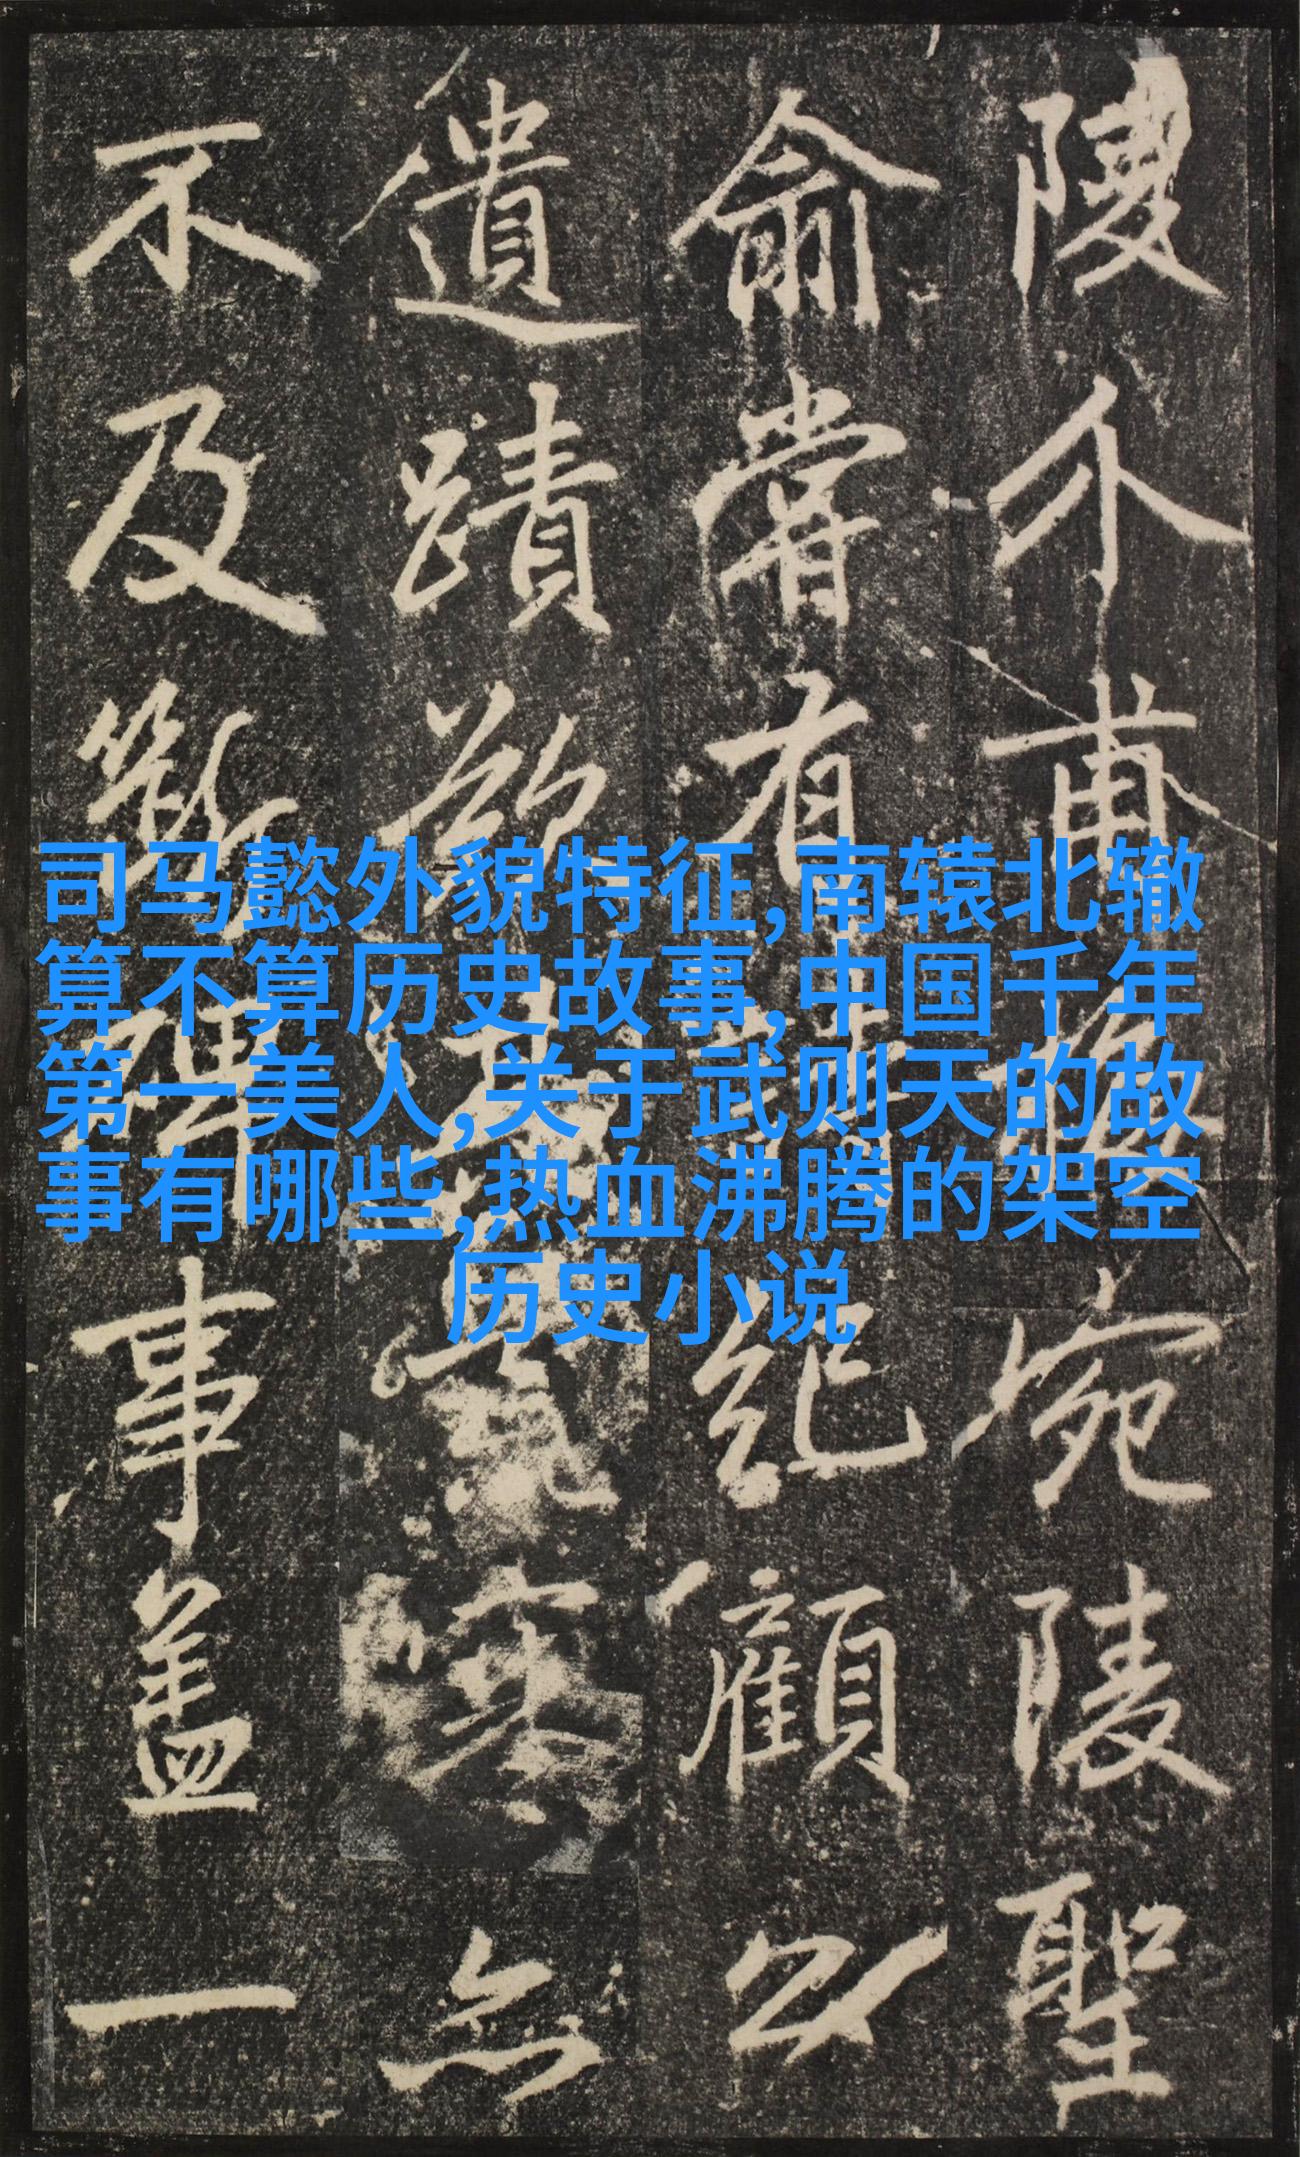 陵介甫宛陵聖
俞嘗有詩紀顧以
遺蹟欲無
不及斷事蓋一
司马懿外貌特征,南辕北辙
算不算历史故事,中国千年
第一美人,关于武则天的故
事有哪些,热血沸腾的架空
历史小说